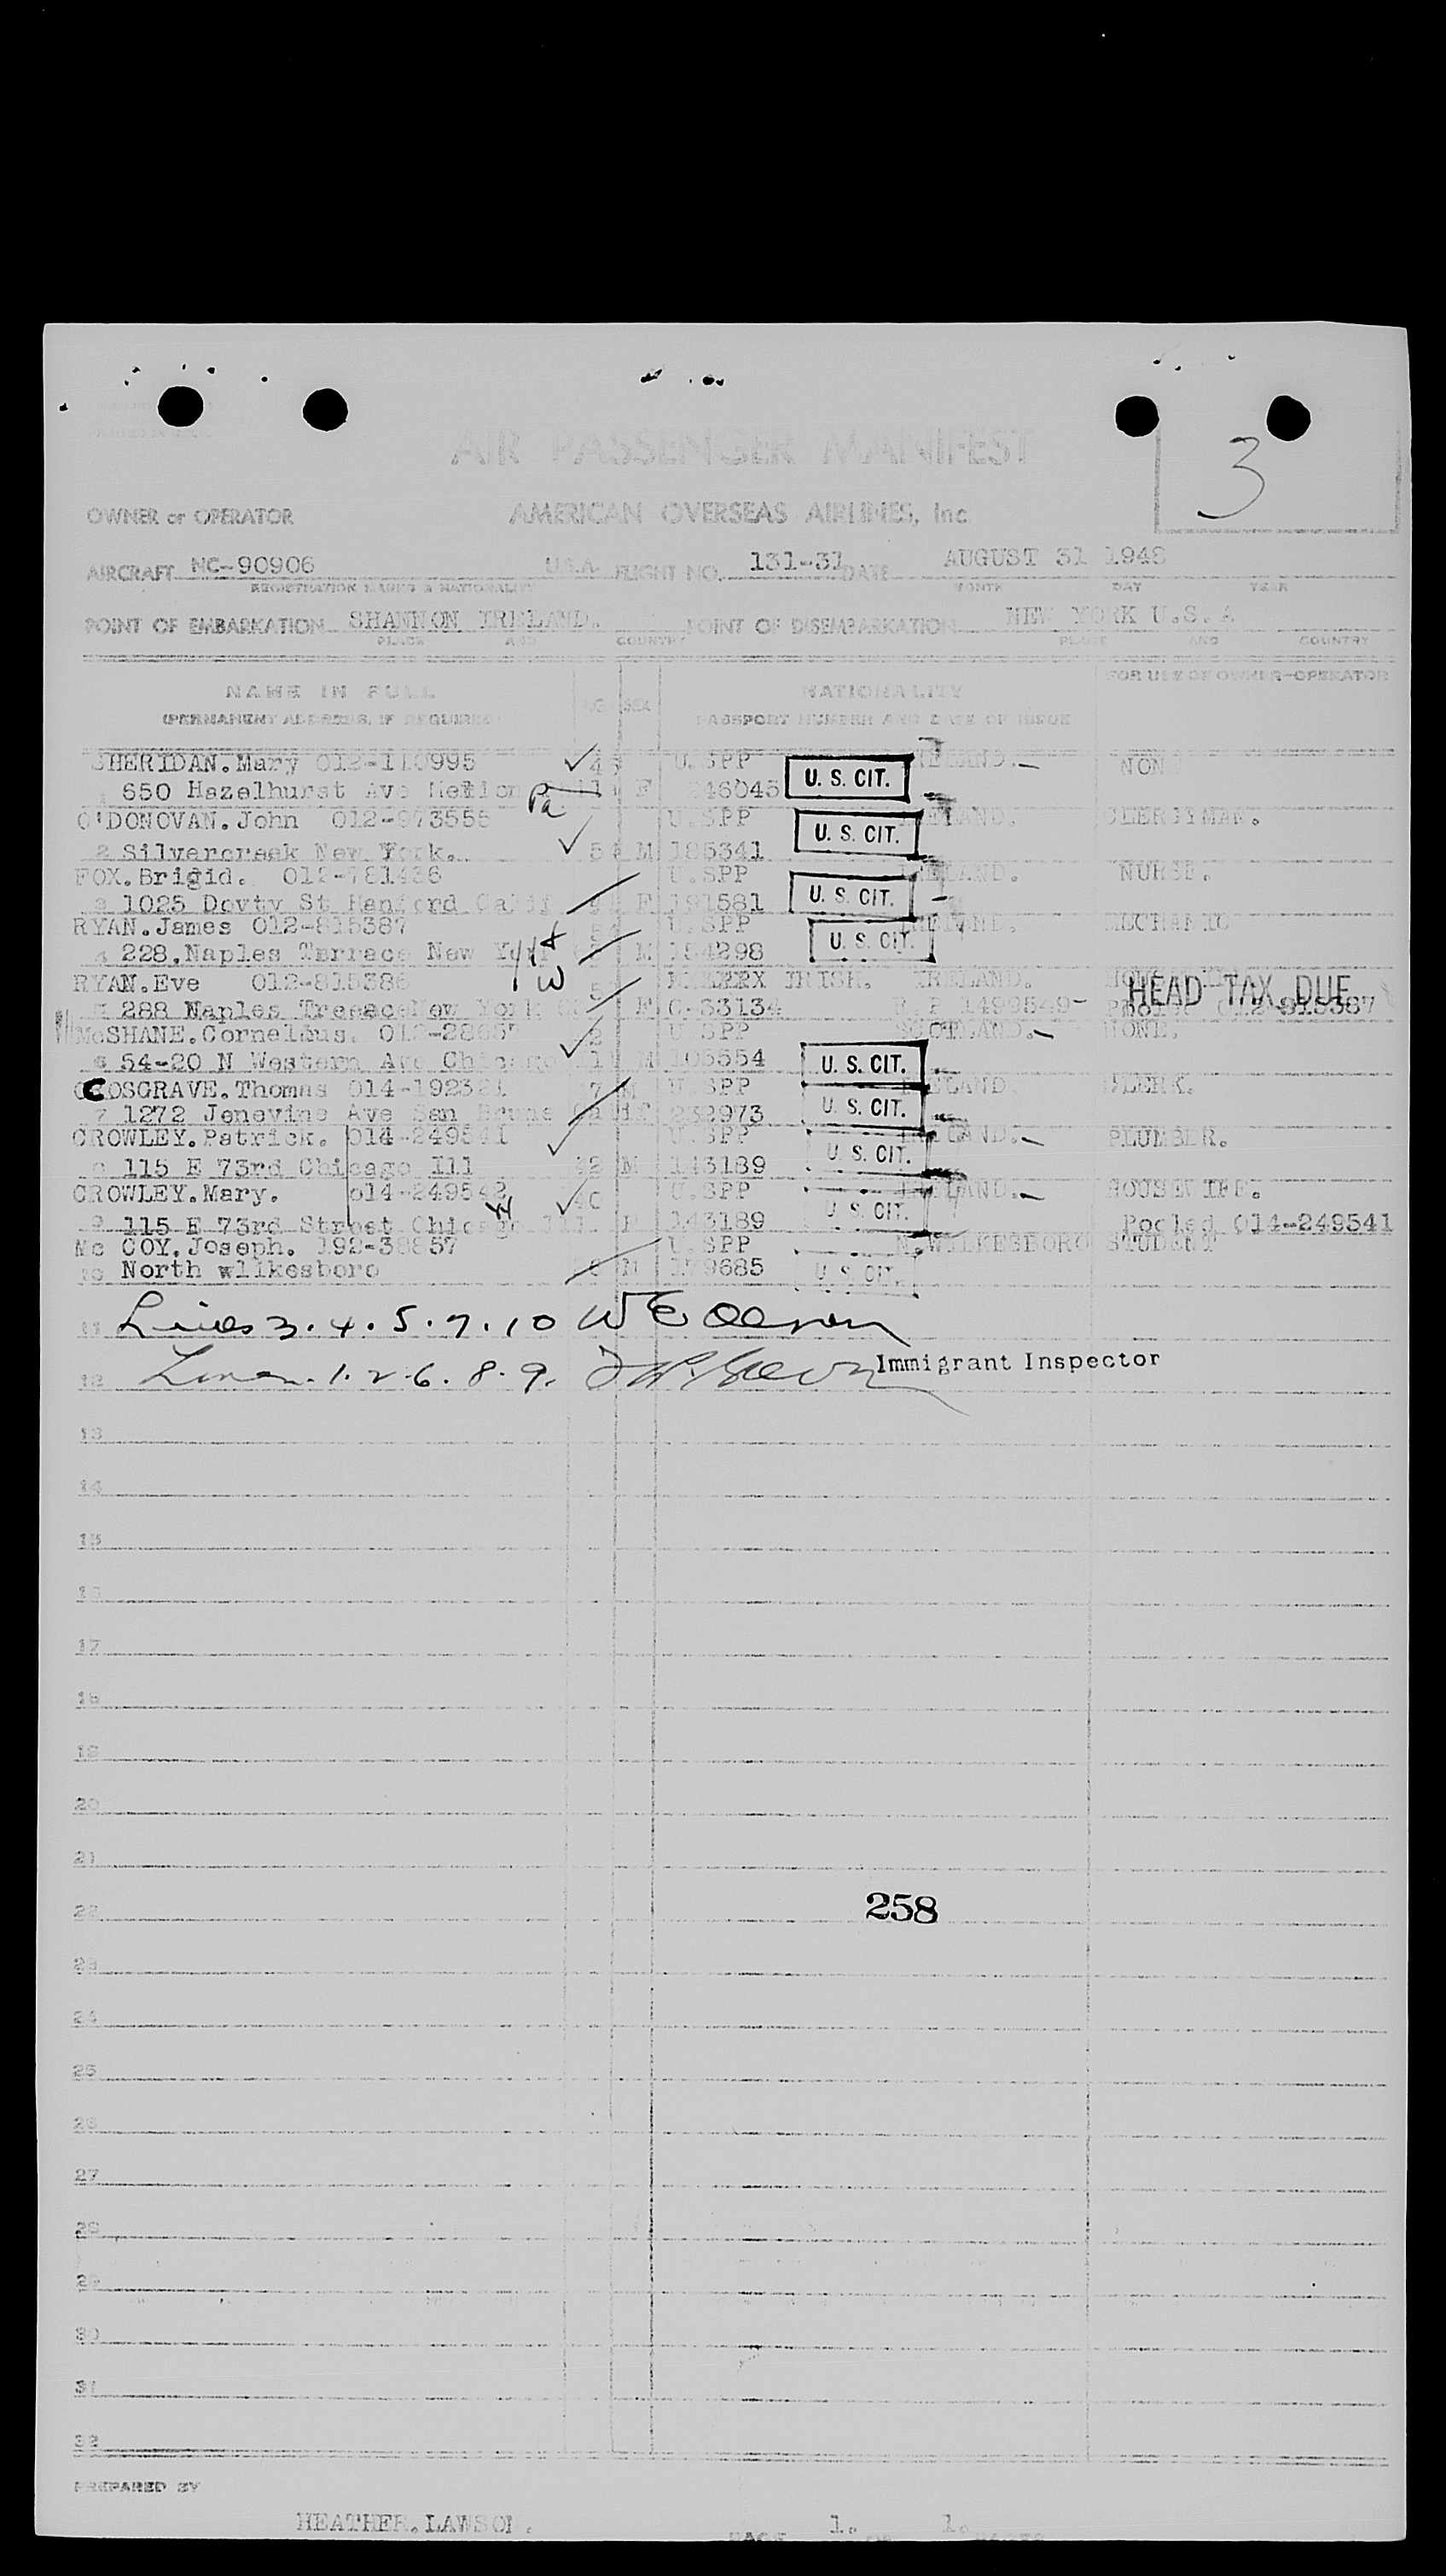 3
AIR PASSENGER MANIFEST
OWNER or OPERATOR AMERICAN OVERSEAS AIRLINES, Inc
AIRCRAFT NC-90906 U.S.A. FLIGHT NO. 131-31 DATE AUGUST 31 1948
REGISTRATION MARKS & NATIONALITY MONTH DAY YEAR
POINT OF EMBARKATION SHANNON IRELAND. POINT OF DISEMBARKATION NEW YORK U.S.A
PLACE AND COUNTRY PLACE AND COUNTRY
NAME IN FULL AGE SEX NATIONALITY FOR USE OF OWNER-OPERATOR
(PERMANENT ADDRESS, IF REQUIRED) PASSPORT NUMBER AND DATE OF ISSUE
SHERIDAN.Mary 012-110995 U.SPP IRELAND. NON
650 Hazelhurst Ave Pa F 246045 U. S. CIT.
O'DONOVAN.John 012-973555 U.SPP IRELAND. CLERGYMAN.
2 Silvercreek New York. 54 M 185341 U. S. CIT.
FOX.Brigid. 012-781436 U.SPP IRELAND. NURSE.
3 1025 Dovty St Hanford Calif F 191581 U. S. CIT.
RYAN.James 012-815387 U.SPP IRELAND. MECHANIC
4 228,Naples Terrace New York M 154298 U. S. CIT.
RYAN.Eve 012-815386 IRISH. IRELAND.
H & W
5 288 Naples Treeace New York F C.33134 R.P 1499549- HEAD TAX DUE
McSHANE.Cornelius. 012-28657 U SPP SCOTLAND. NONE.
6 54-20 N Western Ave Chicago M 105554 U. S. CIT.
COSGRAVE.Thomas 014-192321 U SPP IRELAND. CLERK.
7 1272 Jenevine Ave San Bruno Calif 232973 U. S. CIT.
CROWLEY.Patrick. 014-249541 U.SPP IRELAND. PLUMBER.
8 115 E 73rd Chicago Ill 42 M 143189 U. S. CIT.
CROWLEY.Mary. 014-249542 40 U.SPP IRELAND. HOUSEWIFE.
9 115 E 73rd Street Chicago Ill. F 143189 U. S. CIT. Pooled 014-249541
Mc COY.Joseph. 192-38857 U.SPP N.WILKESBORO STUDENT
10 North wilkesboro M 159685 U. S. CIT.
11 Lines 3.4.5.7.10 W E
12 Lines. 1.2.6.8.9. Immigrant Inspector
13
14
15
16
17
18
19
20
21
22 258
23
24
25
26
27
28
29
30
31
32
PREPARED BY
HEATHER.LAWSON. PAGE 1. OF 1. PAGES